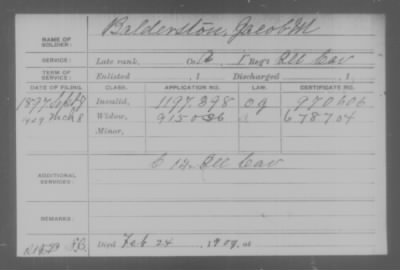 NAME OF SOLDIER: Balderston, Jacob M
SERVICE: Late rank, Co. A, 1 Reg't Ill Cav
TERM OF SERVICE: Enlisted , 1 Discharged , 1
DATE OF FILING. CLASS. APPLICATION NO. LAW. CERTIFICATE NO.
1897 Sept 8 Invalid, 1197.398 O G 970606
1909 Mch 8 Widow, 915036 " 678704
Minor,
ADDITIONAL SERVICES: C 12 Ill Cav
REMARKS:
Died Feb 24 , 1909, at